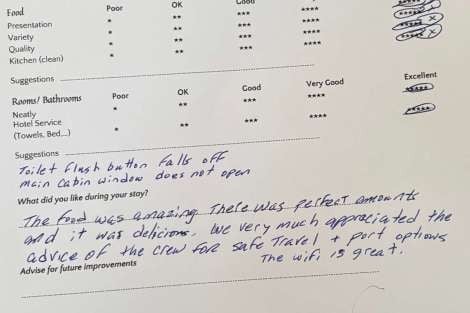 Food Poor OK Good ****
Presentation * ** *** **** *****
Variety * ** *** **** ***** x
Quality * ** *** **** ***** x
Kitchen (clean) * ** *** ****
Suggestions
Rooms/ Bathrooms Poor OK Good Very Good Excellent
Neatly * ** *** **** *****
Hotel Service
(Towels, Bed,...) * ** *** **** *****
Suggestions
Toilet flush button falls off
main cabin window does not open
What did you like during your stay?
The food was amazing There was perfect amounts
and it was delicious. We very much appreciated the
advice of the crew for safe travel + port options
The wifi is great.
Advise for future improvements